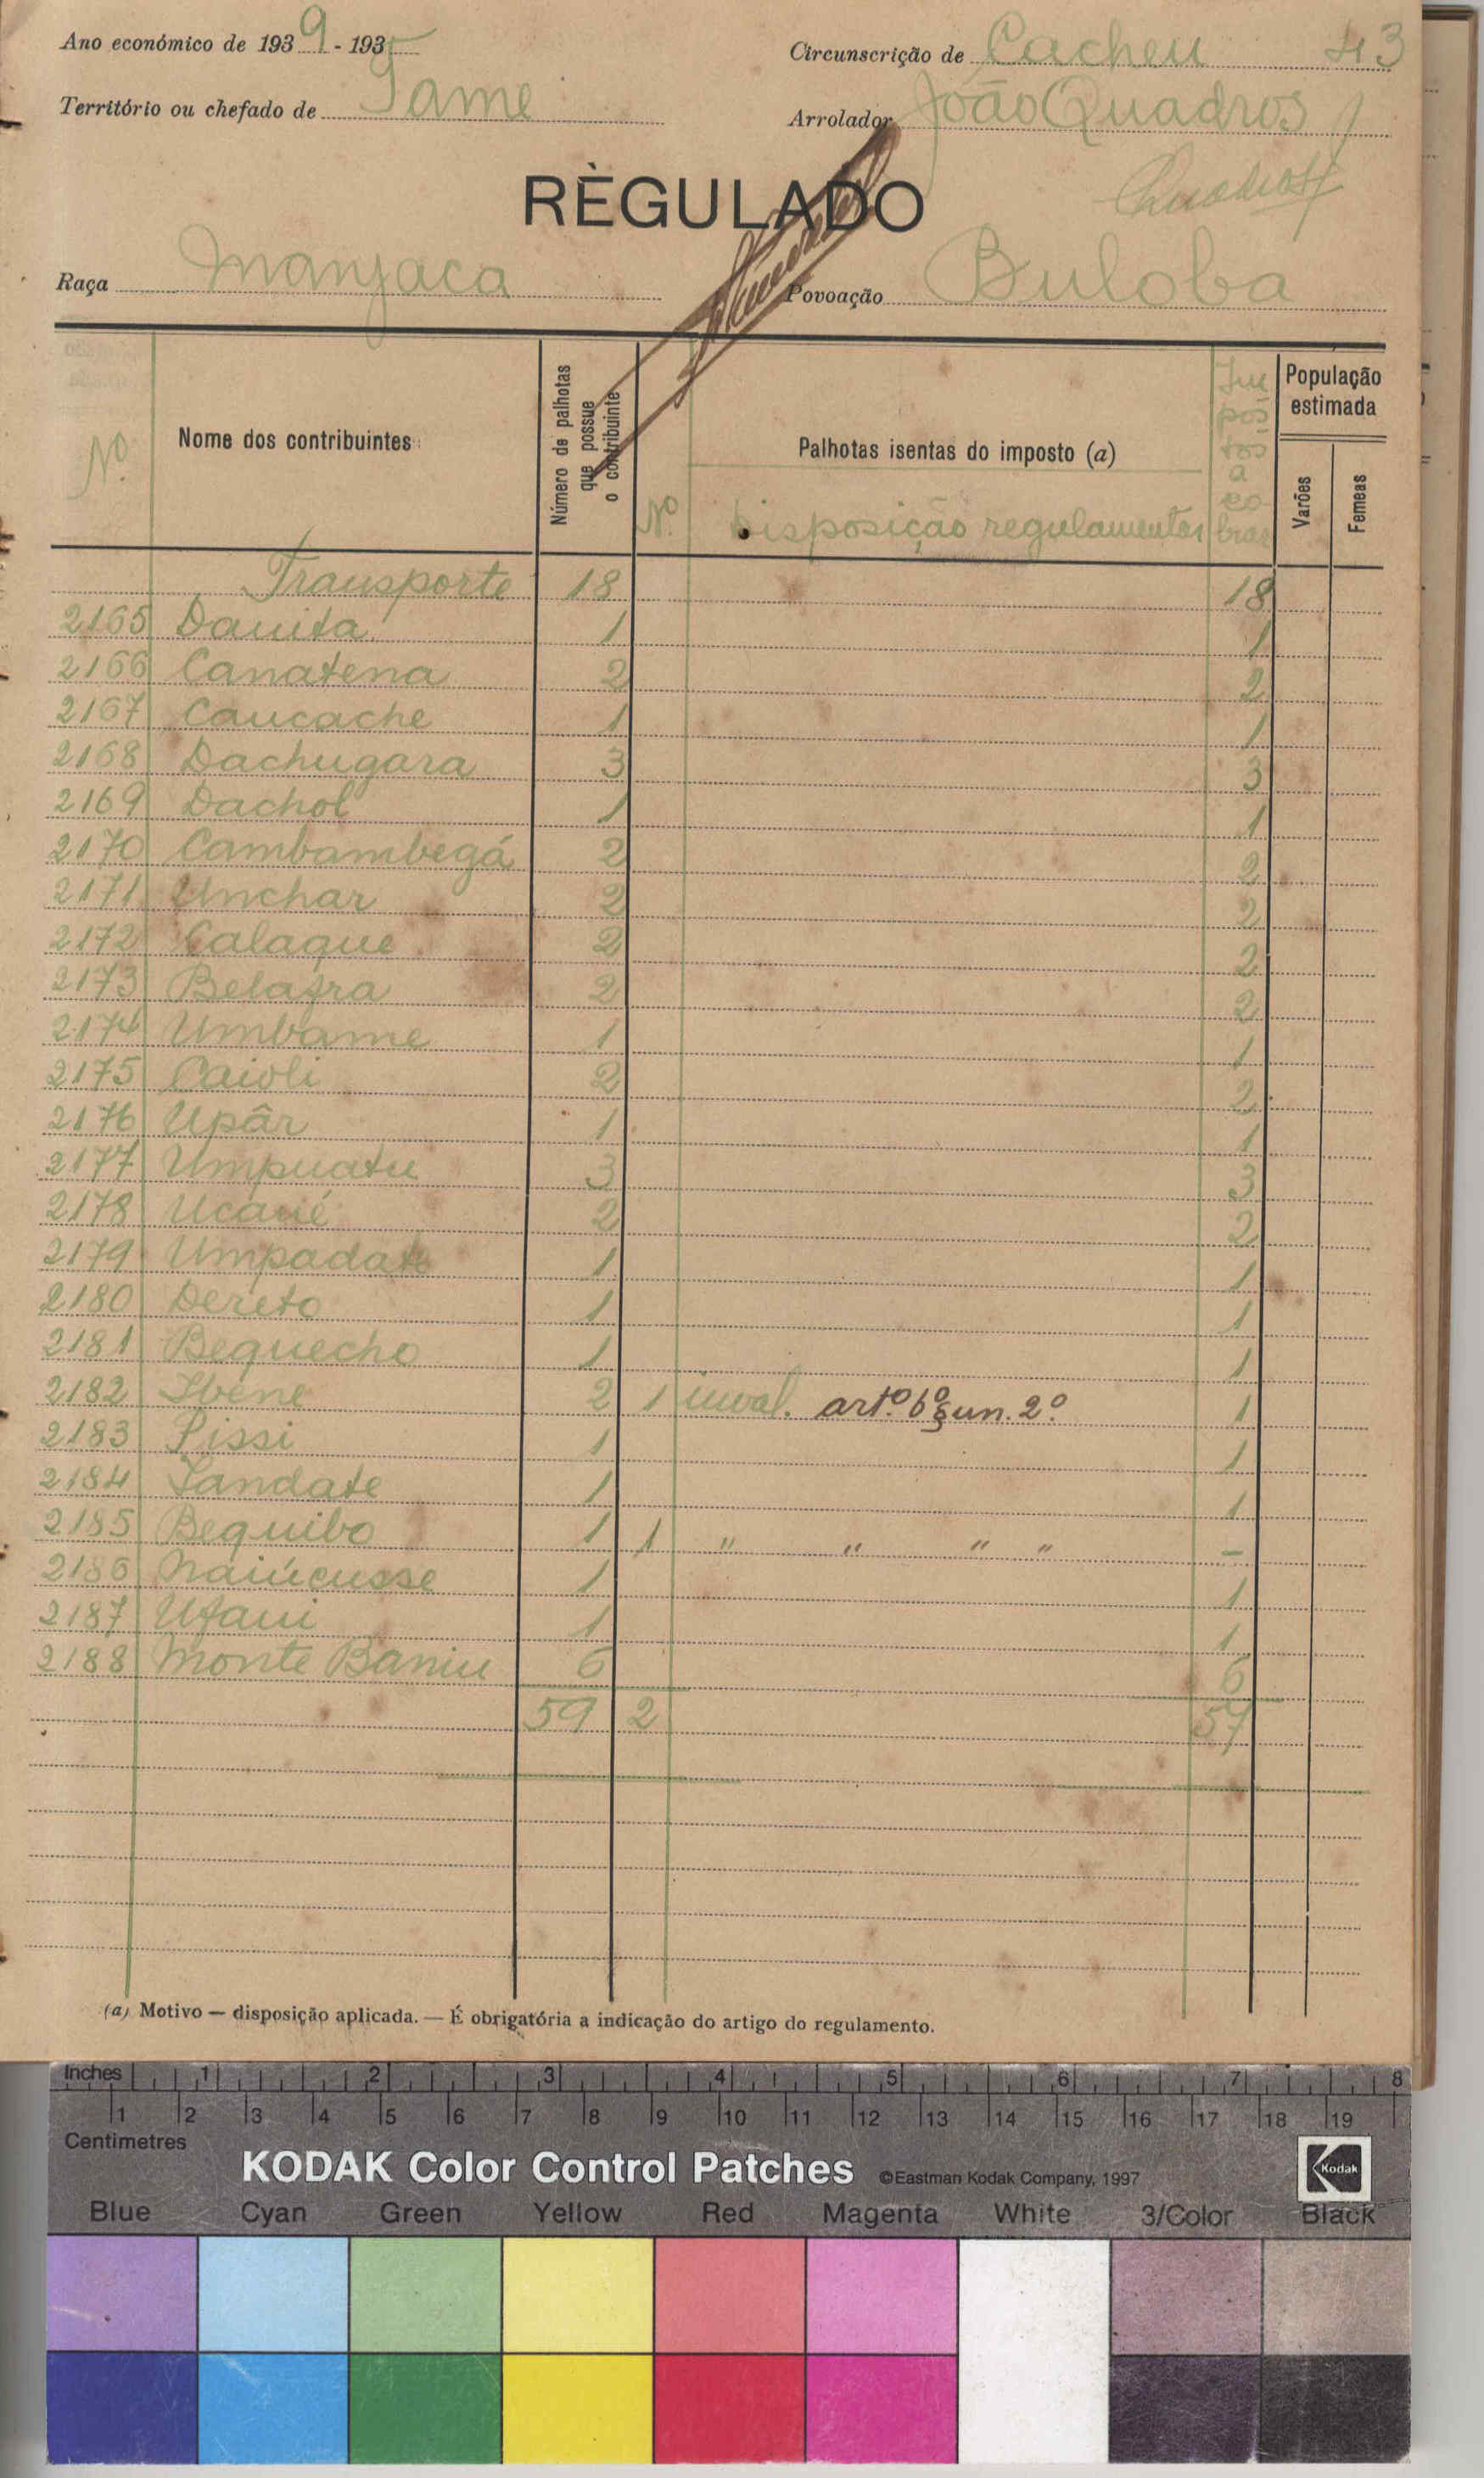 Ano económico de 1939 - 193
Circunscrição de Cacheu 43
Território ou chefado de Tame
Arrolador João Quadros
RÈGULADO
Quadros
Raça Manjaca
Povoação Buloba
Nº
Nome dos contribuintes
Número de palhotas que possue o contribuinte
Nº.
Palhotas isentas do imposto (a)
Disposição regulamentar
Im
pos
tos
a
co
brar
População estimada
Varões
Femeas
Transporte 18 18
2165 Dauita 1 1
2166 Canatena 2 2
2167 Caucache 1 1
2168 Dachugara 3 3
2169 Dachol 1 1
2170 Cambambegá 2 2
2171 Unchar 2 2
2172 Calaque 2 2
2173 Belafra 2 2
2174 Umbame 1 1
2175 Caioli 2 2
2176 Upâr 1 1
2177 Umpuatu 3 3
2178 Ucaué 2 2
2179 Umpadate 1 1
2180 Dereto 1 1
2181 Bequecho 1 1
2182 Ibéne 2 1 inval. artº. 6º § un. 2º. 1
2183 Pissi 1 1
2184 Tandate 1 1
2185 Bequibo 1 1 " " " " -
2186 Naiúcusse 1 1
2187 Ufaui 1 1
2188 Monte Baniu 6 6
59 2 57
(a) Motivo — disposição aplicada. — É obrigatória a indicação do artigo do regulamento.
Inches 1 2 3 4 5 6 7 8
1 2 3 4 5 6 7 8 9 10 11 12 13 14 15 16 17 18 19
Centimetres
KODAK Color Control Patches ©Eastman Kodak Company, 1997 Kodak
Blue Cyan Green Yellow Red Magenta White 3/Color Black